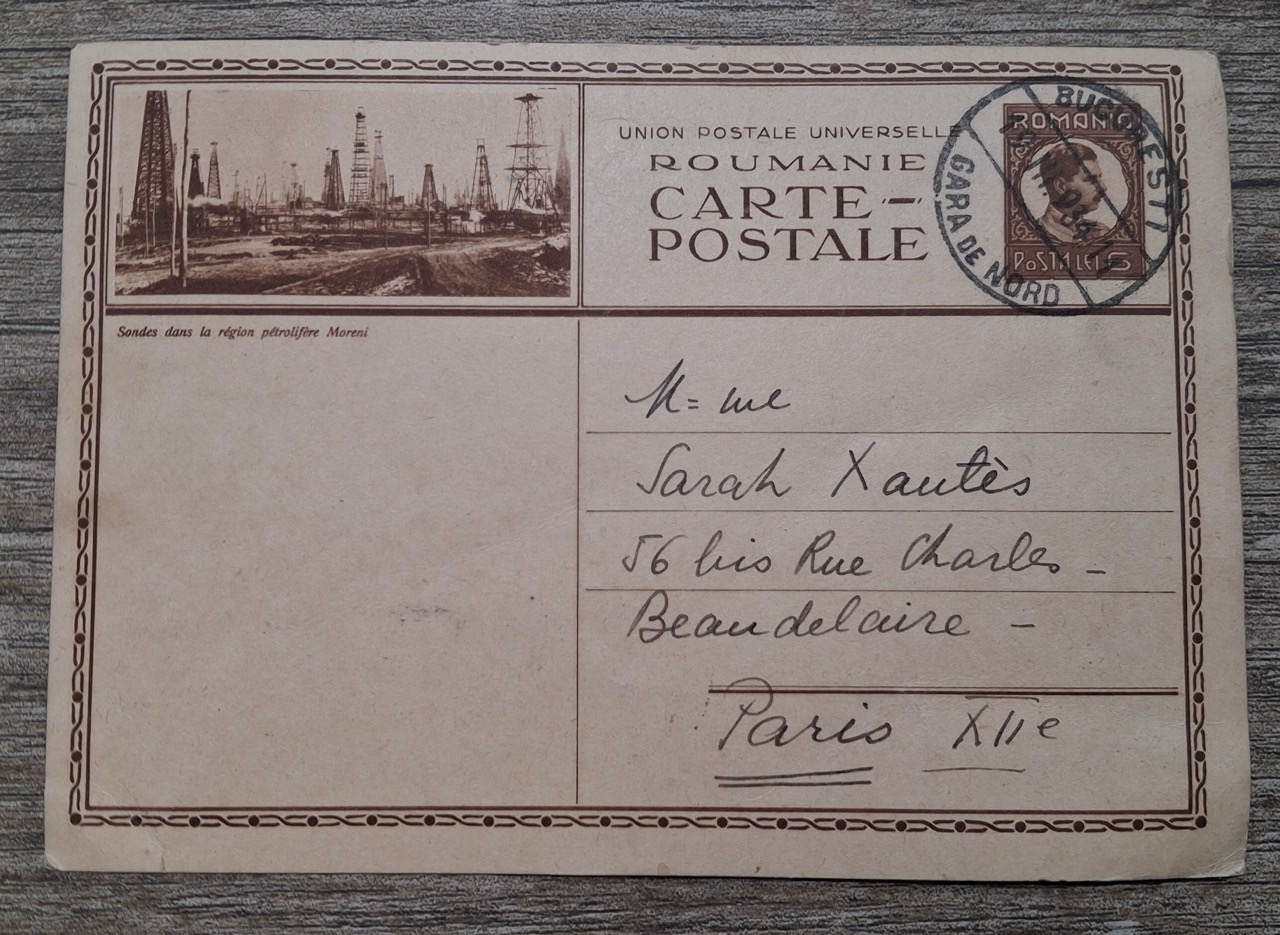 UNION POSTALE UNIVERSELLE
ROUMANIE
CARTE-
POSTALE
ROMANIA
POSTA LEI 6
BUCUREȘTI
GARA DE NORD
Sondes dans la région pétrolifère Moreni
M=me
Sarah Xantès
56 bis Rue Charles -
Beaudelaire -
Paris XIIe